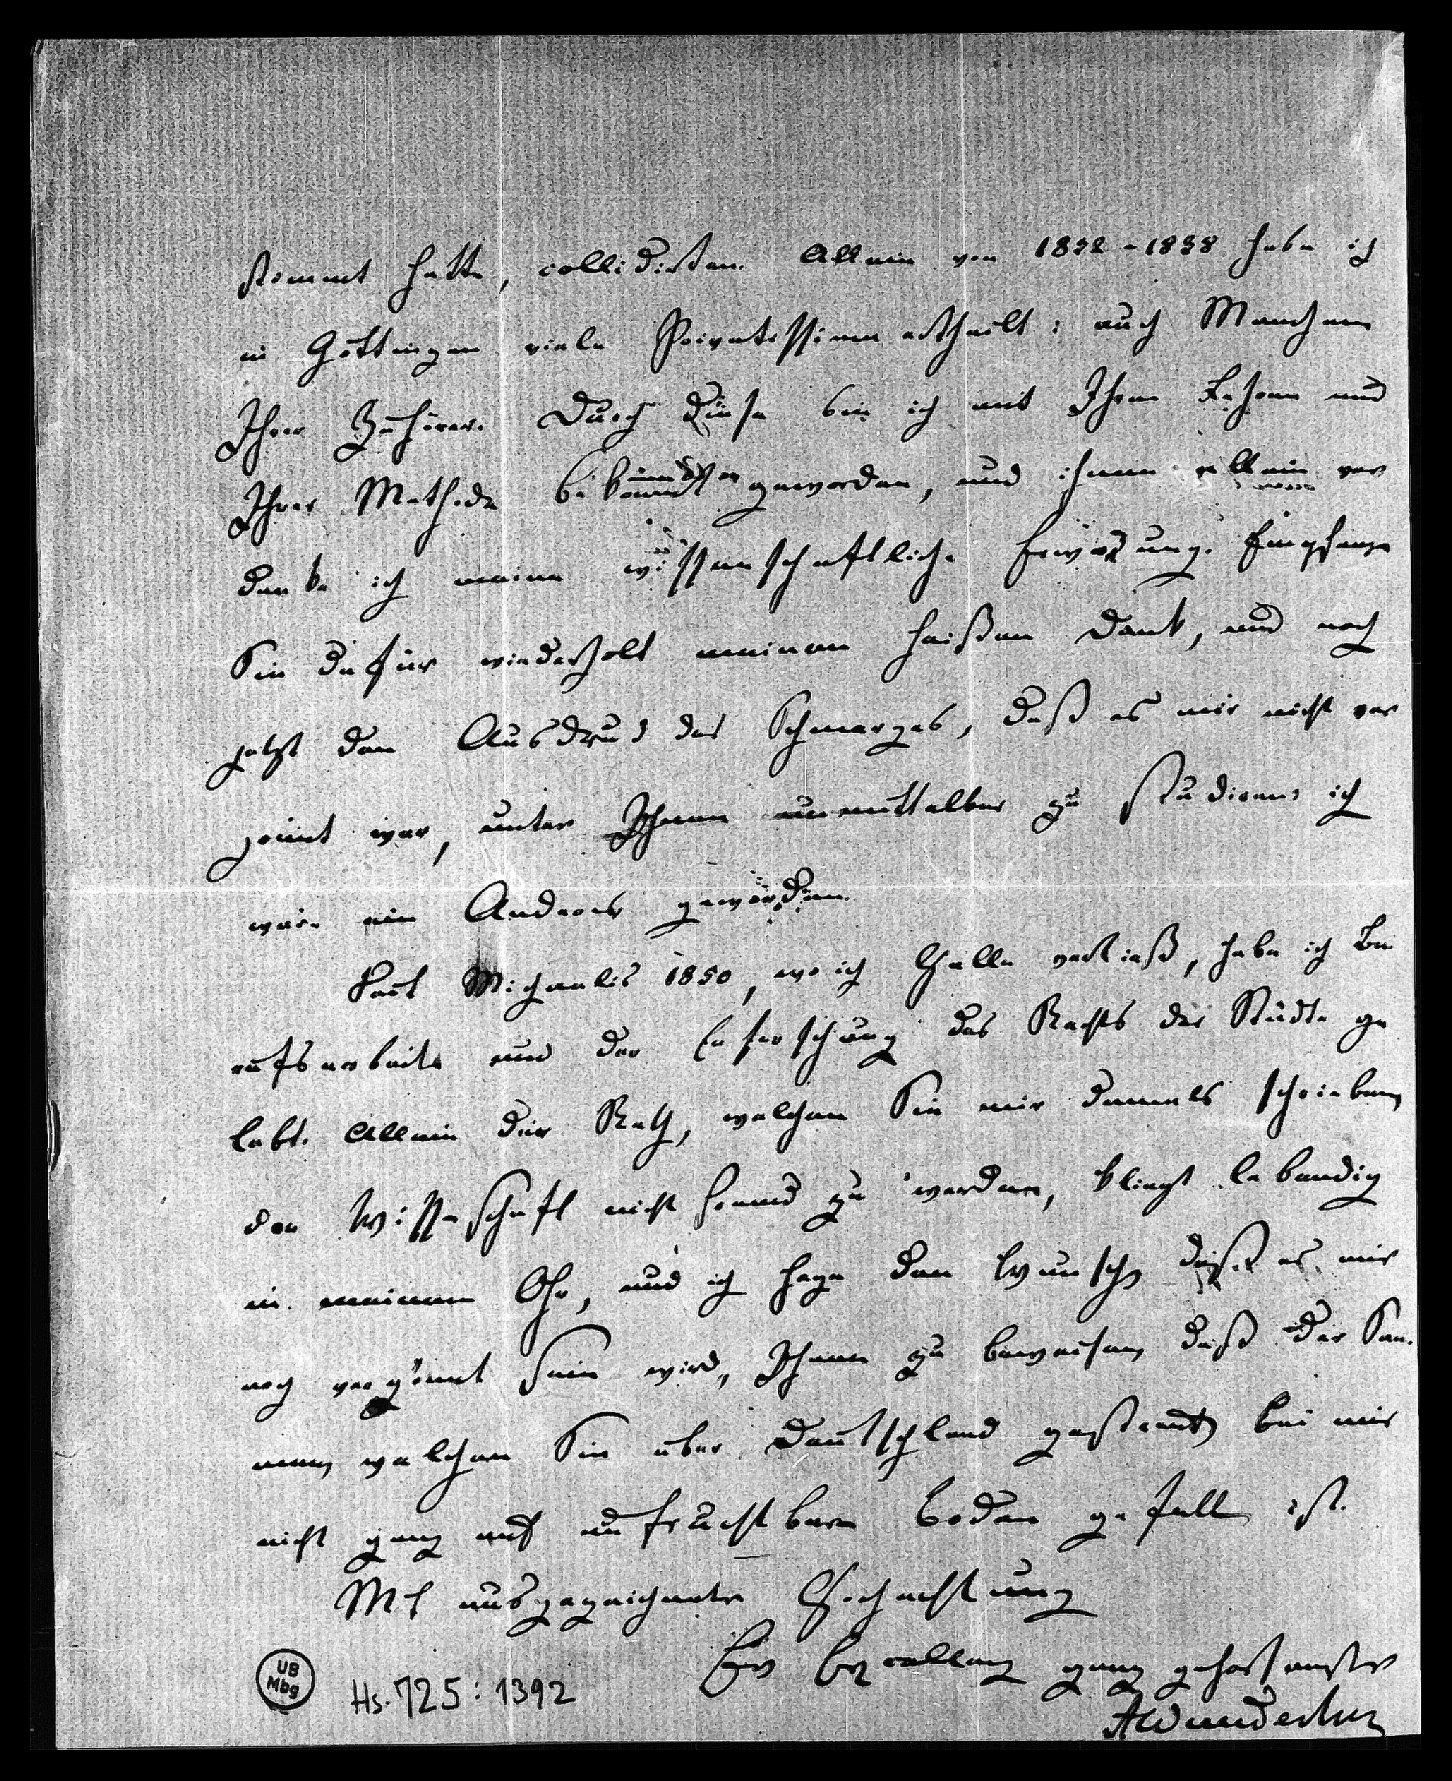 stimmt hatte, collidirten. Allein von 1832-1838 habe ich
in Göttingen viele Privatissima ertheilt: auch Manchem
Ihrer Zuhörer. Durch diese bin ich mit Ihren Lehren und
Ihrer Methode bekannt geworden, und ihnen allein ver
danke ich meine wissenschaftliche Empfangen
Sie dafür wiederholt meinen heißen Dank, und noch
jetzt den Ausdruck des Schmerzes, daß es mir nicht ver
gönnt war, unter Ihnen unmittelbar zu studiren: ich
wäre ein Anderer geworden.
Seit Michaelis 1850, wo ich Celle verließ, habe ich Be
rufsarbeiten und der Erforschung des Rechts der Städte ge
lebt. Allein der Rath, welchen Sie mir damals schrieben,
der Wissenschaft nicht fremd zu werden, klingt lebendig
in meinem Ohr, und ich hege den Wunsch, daß es mir
noch vergönnt sein wird, Ihnen zu beweisen, daß der Saa-
men, welchen Sie über Deutschland gestreut, bei mir
nicht ganz auf unfruchtbaren Boden gefallen ist.
Mit ausgezeichneter Hochachtung
Ew Excellenz ganz gehorsamster
UB
Mbg
Hs. 725: 1392